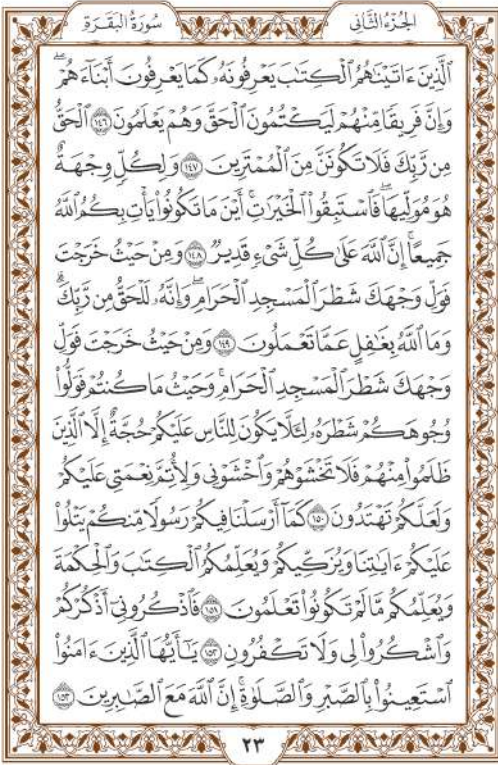 الجُزْءُ الثَّانِي سُورَةُ البَقَرَةِ
ٱلَّذِينَ ءَاتَيْنَٰهُمُ ٱلْكِتَٰبَ يَعْرِفُونَهُۥ كَمَا يَعْرِفُونَ أَبْنَآءَهُمْۖ
وَإِنَّ فَرِيقًا مِّنْهُمْ لَيَكْتُمُونَ ٱلْحَقَّ وَهُمْ يَعْلَمُونَ ١٤٦ ٱلْحَقُّ
مِن رَّبِّكَ فَلَا تَكُونَنَّ مِنَ ٱلْمُمْتَرِينَ ١٤٧ وَلِكُلٍّ وِجْهَةٌ
هُوَ مُوَلِّيهَاۖ فَٱسْتَبِقُوا۟ ٱلْخَيْرَٰتِۚ أَيْنَ مَا تَكُونُوا۟ يَأْتِ بِكُمُ ٱللَّهُ
جَمِيعًاۚ إِنَّ ٱللَّهَ عَلَىٰ كُلِّ شَىْءٍ قَدِيرٌ ١٤٨ وَمِنْ حَيْثُ خَرَجْتَ
فَوَلِّ وَجْهَكَ شَطْرَ ٱلْمَسْجِدِ ٱلْحَرَامِۖ وَإِنَّهُۥ لَلْحَقُّ مِن رَّبِّكَۗ
وَمَا ٱللَّهُ بِغَٰفِلٍ عَمَّا تَعْمَلُونَ ١٤٩ وَمِنْ حَيْثُ خَرَجْتَ فَوَلِّ
وَجْهَكَ شَطْرَ ٱلْمَسْجِدِ ٱلْحَرَامِۚ وَحَيْثُ مَا كُنتُمْ فَوَلُّوا۟
وُجُوهَكُمْ شَطْرَهُۥ لِئَلَّا يَكُونَ لِلنَّاسِ عَلَيْكُمْ حُجَّةٌ إِلَّا ٱلَّذِينَ
ظَلَمُوا۟ مِنْهُمْ فَلَا تَخْشَوْهُمْ وَٱخْشَوْنِى وَلِأُتِمَّ نِعْمَتِى عَلَيْكُمْ
وَلَعَلَّكُمْ تَهْتَدُونَ ١٥٠ كَمَآ أَرْسَلْنَا فِيكُمْ رَسُولًا مِّنكُمْ يَتْلُوا۟
عَلَيْكُمْ ءَايَٰتِنَا وَيُزَكِّيكُمْ وَيُعَلِّمُكُمُ ٱلْكِتَٰبَ وَٱلْحِكْمَةَ
وَيُعَلِّمُكُم مَّا لَمْ تَكُونُوا۟ تَعْلَمُونَ ١٥١ فَٱذْكُرُونِىٓ أَذْكُرْكُمْ
وَٱشْكُرُوا۟ لِى وَلَا تَكْفُرُونِ ١٥٢ يَٰٓأَيُّهَا ٱلَّذِينَ ءَامَنُوا۟
ٱسْتَعِينُوا۟ بِٱلصَّبْرِ وَٱلصَّلَوٰةِۚ إِنَّ ٱللَّهَ مَعَ ٱلصَّٰبِرِينَ ١٥٣
٢٣